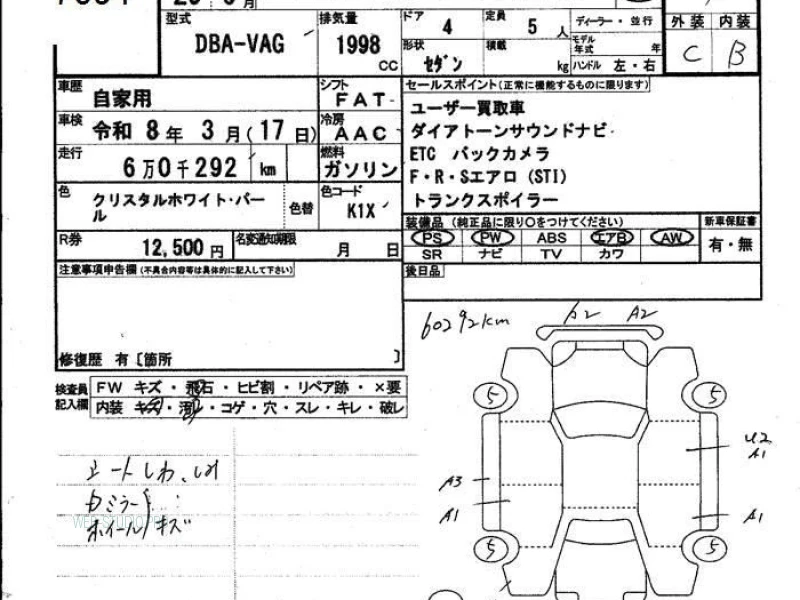 型式 DBA-VAG 排気量 1998 CC
ドア 4 定員 5 人 ディーラー・並行
形状 セダン 積載 kg モデル年式 年
ハンドル 左・右
外装 内装
C B
車歴 自家用 シフト FAT
車検 令和 8年 3月(17日) 冷房 AAC
走行 6万0千292 km 燃料 ガソリン
色 クリスタルホワイト・パール 色替 色コード K1X
R券 12,500円 名変通知期限 月 日
セールスポイント(正常に機能するものに限ります)
ユーザー買取車
ダイアトーンサウンドナビ
ETC バックカメラ
F・R・Sエアロ (STI)
トランクスポイラー
装備品 (純正品に限り○をつけてください) 新車保証書
PS PW ABS エアB AW 有・無
SR ナビ TV カワ
後日品
注意事項申告欄(不具合内容等は具体的に記入して下さい)
修復歴 有〔箇所 〕
検査員記入欄
FW キズ・飛石・ヒビ割・リペア跡・×要
内装 キズ・汚レ・コゲ・穴・スレ・キレ・破レ
シートしわ、しみ
ホイールキズ
60292km
A2
5 5
A3
A1
U2
A1
A1
5 5